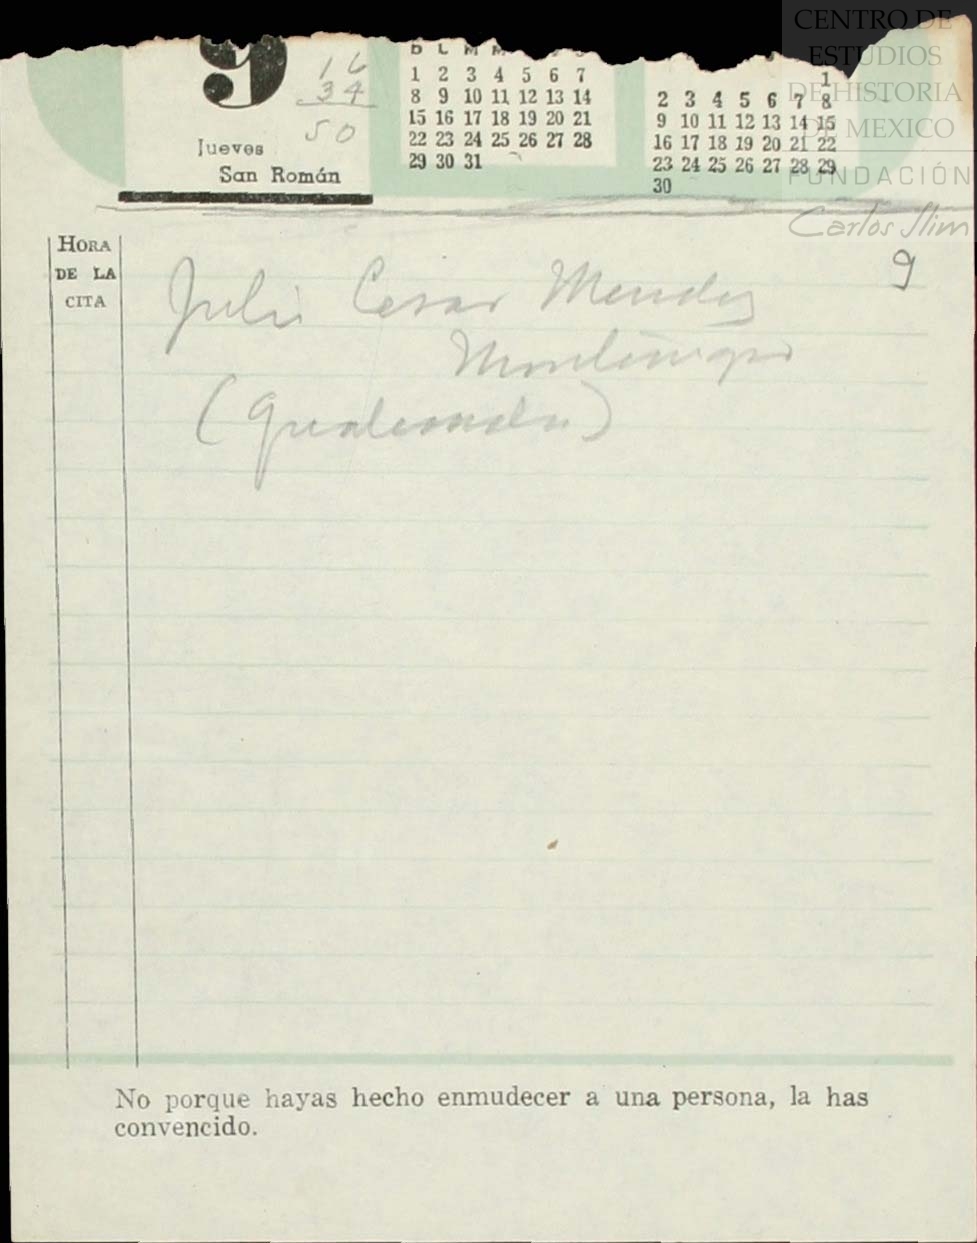 9
16
34
50
Jueves
San Román
D L M M
1 2 3 4 5 6 7
8 9 10 11 12 13 14
15 16 17 18 19 20 21
22 23 24 25 26 27 28
29 30 31
1
2 3 4 5 6 7 8
9 10 11 12 13 14 15
16 17 18 19 20 21 22
23 24 25 26 27 28 29
30
CENTRO DE
ESTUDIOS
DE HISTORIA
DE MEXICO
FUNDACIÓN
Carlos Slim
HORA
DE LA
CITA
9
Julio Cesar Mendez
Montenegro
(Guatemala)
No porque hayas hecho enmudecer a una persona, la has
convencido.